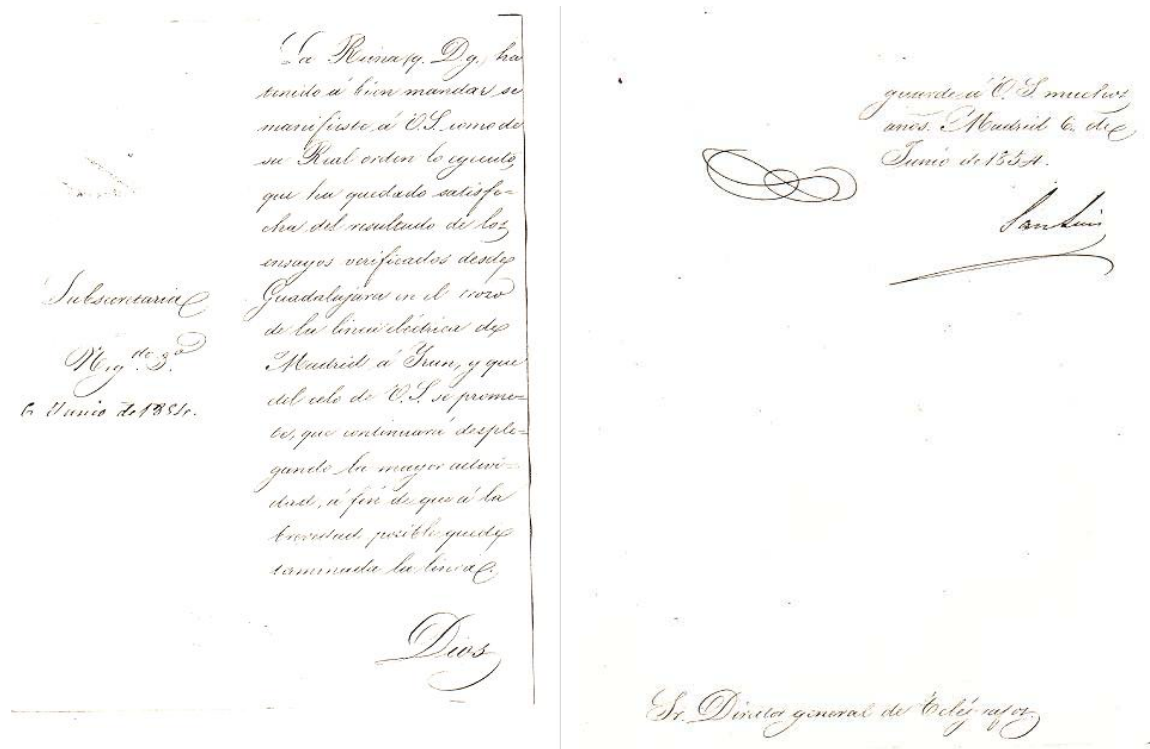 Subsecretaria
Neg.do 3.º
6 Junio de 1854.
La Reina (q. D. g.) ha
tenido á bien mandar se
manifieste á V.S. como de
su Real orden lo egecuto,
que ha quedado satisfe=
cha del resultado de los
ensayos verificados desde
Guadalajara en el trozo
de la linea eléctrica de
Madrid á Irun, y que
del celo de V.S. se prome=
te, que continuará desple=
gando la mayor activi=
dad, á fin de que á la
brevedad posible quede
terminada la linea.
Dios
guarde á V.S. muchos
años. Madrid 6 de
Junio de 1854.
San Luis
Sr. Director general de Telégrafos